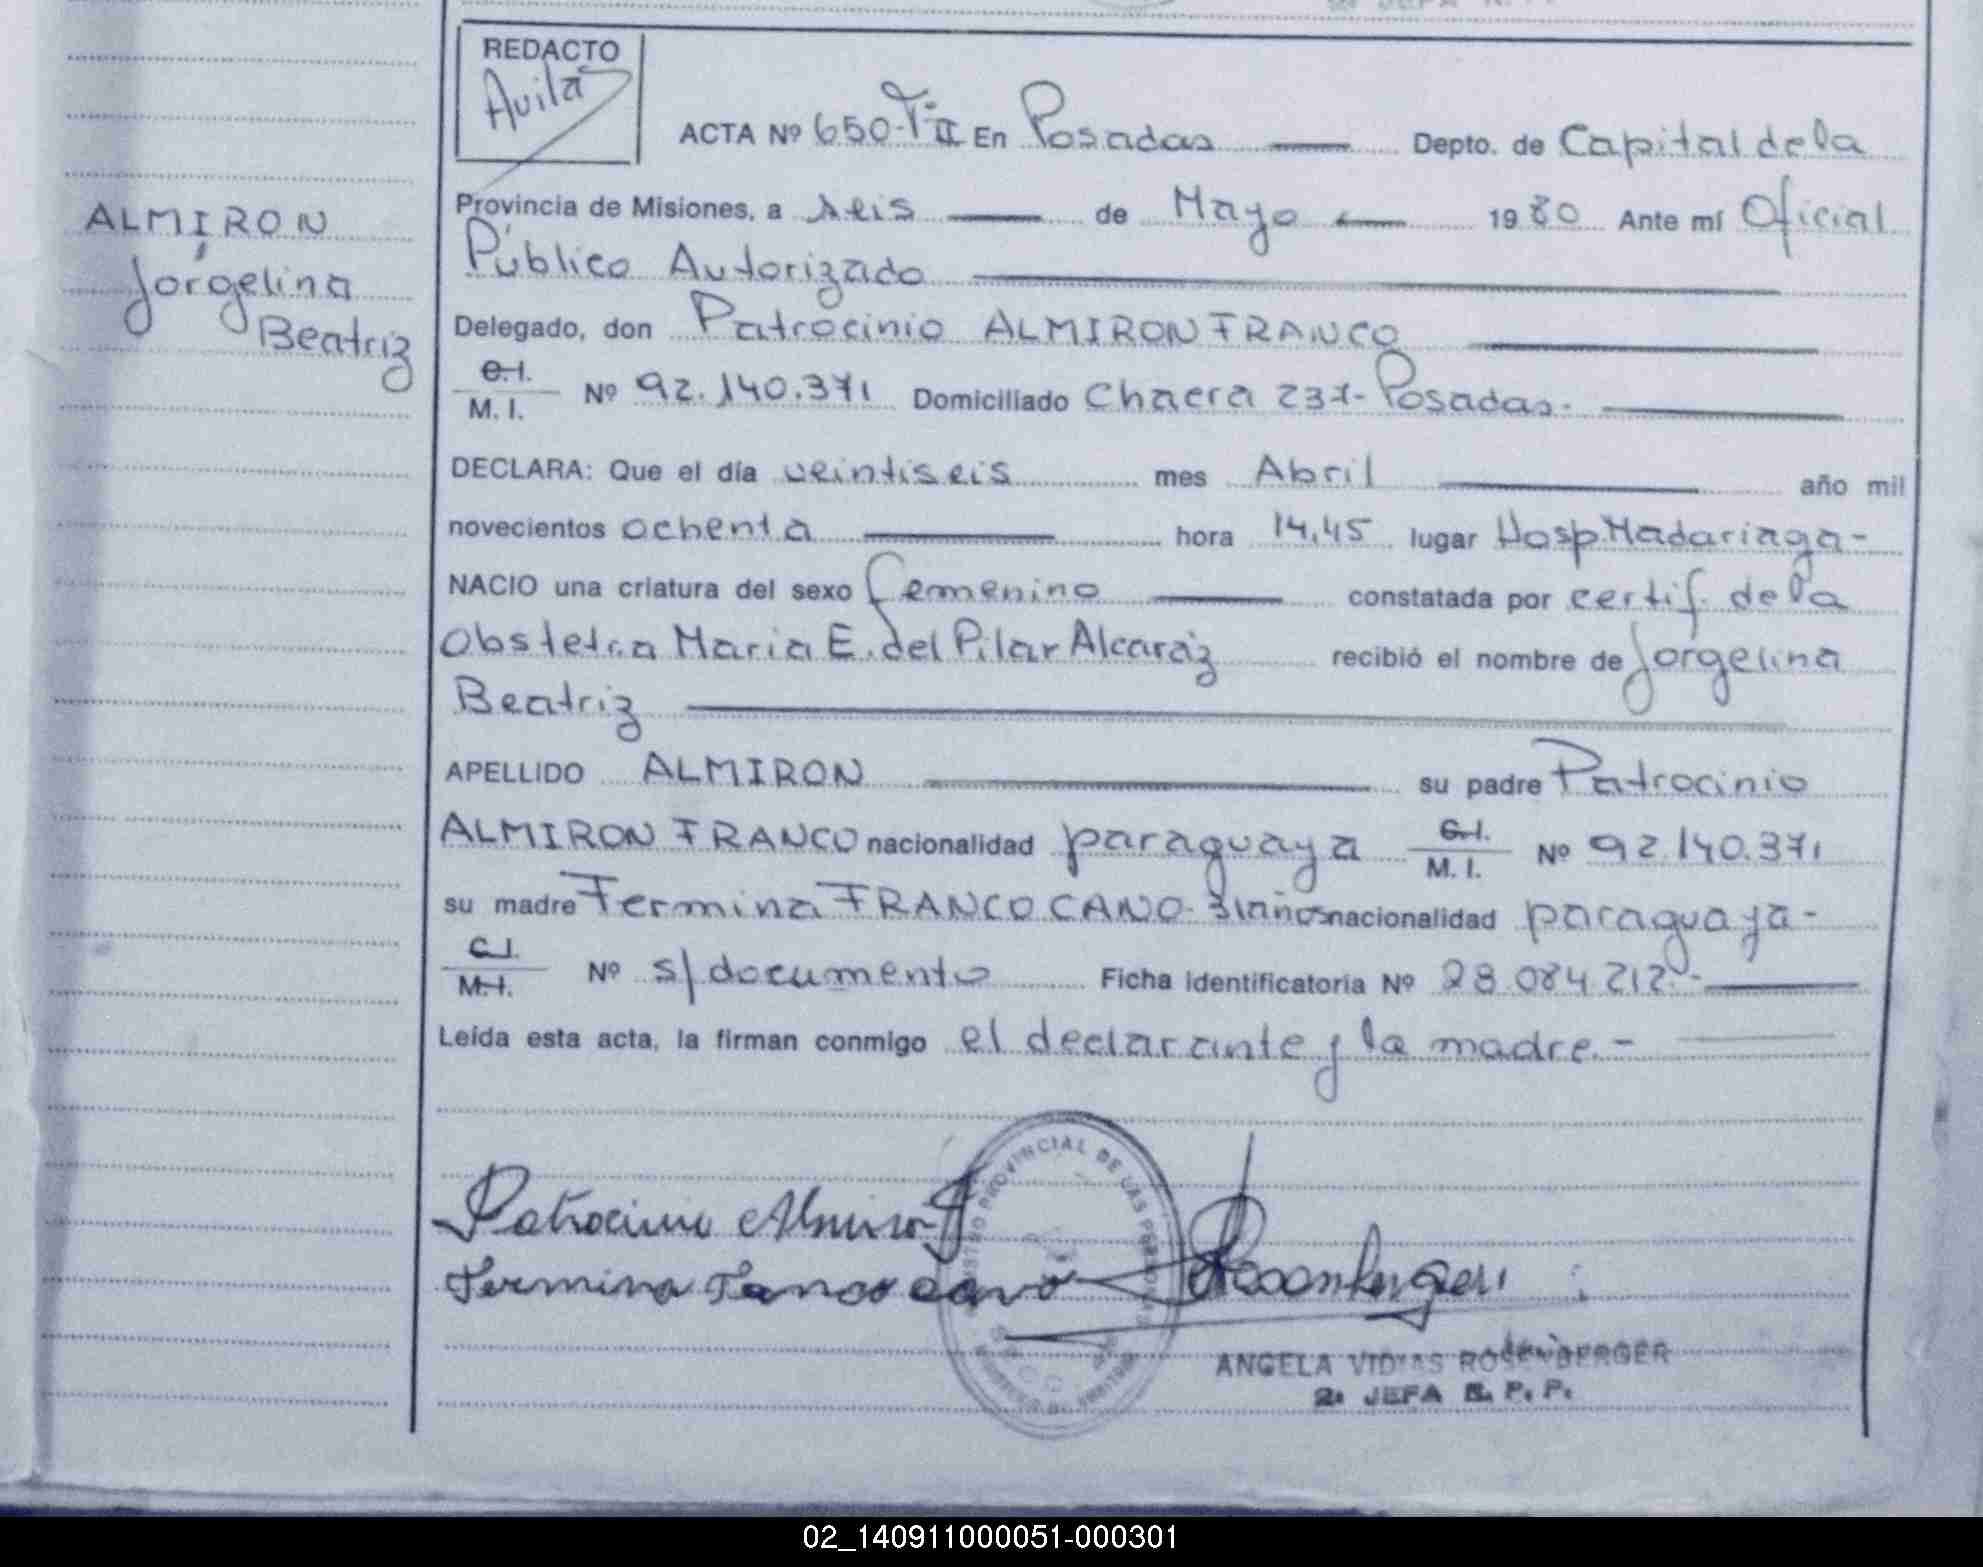 REDACTO
Avila
ACTA Nº 650-Tº II En Posadas Depto. de Capital de la
Provincia de Misiones, a seis de Mayo 1980 Ante mí Oficial
Público Autorizado
Delegado, don Patrocinio ALMIRON FRANCO
C.I. M. I. Nº 92.140.371 Domiciliado Chacra 237- Posadas.
DECLARA: Que el día veintiseis mes Abril año mil
novecientos ochenta hora 14,45 lugar Hosp. Madariaga-
NACIO una criatura del sexo femenino constatada por certif. de la
Obstetra Maria E. del Pilar Alcaráz recibió el nombre de Jorgelina
Beatriz
APELLIDO ALMIRON su padre Patrocinio
ALMIRON FRANCO nacionalidad paraguaya C.I. M. I. Nº 92.140.371
su madre Fermina FRANCO CANO- 31 años nacionalidad paraguaya-
C.I. M.I. Nº s/documento Ficha identificatoria Nº 28.084.212.-
Leída esta acta, la firman conmigo el declarante y la madre.-
ALMIRON
Jorgelina
Beatriz
PROVINCIAL DE LAS PERSONAS
Patrocinio Almiron
Fermina Franco cano
ANGELA VIDAS ROSENBERGER
2ª JEFA E. P. P.
02_140911000051-000301